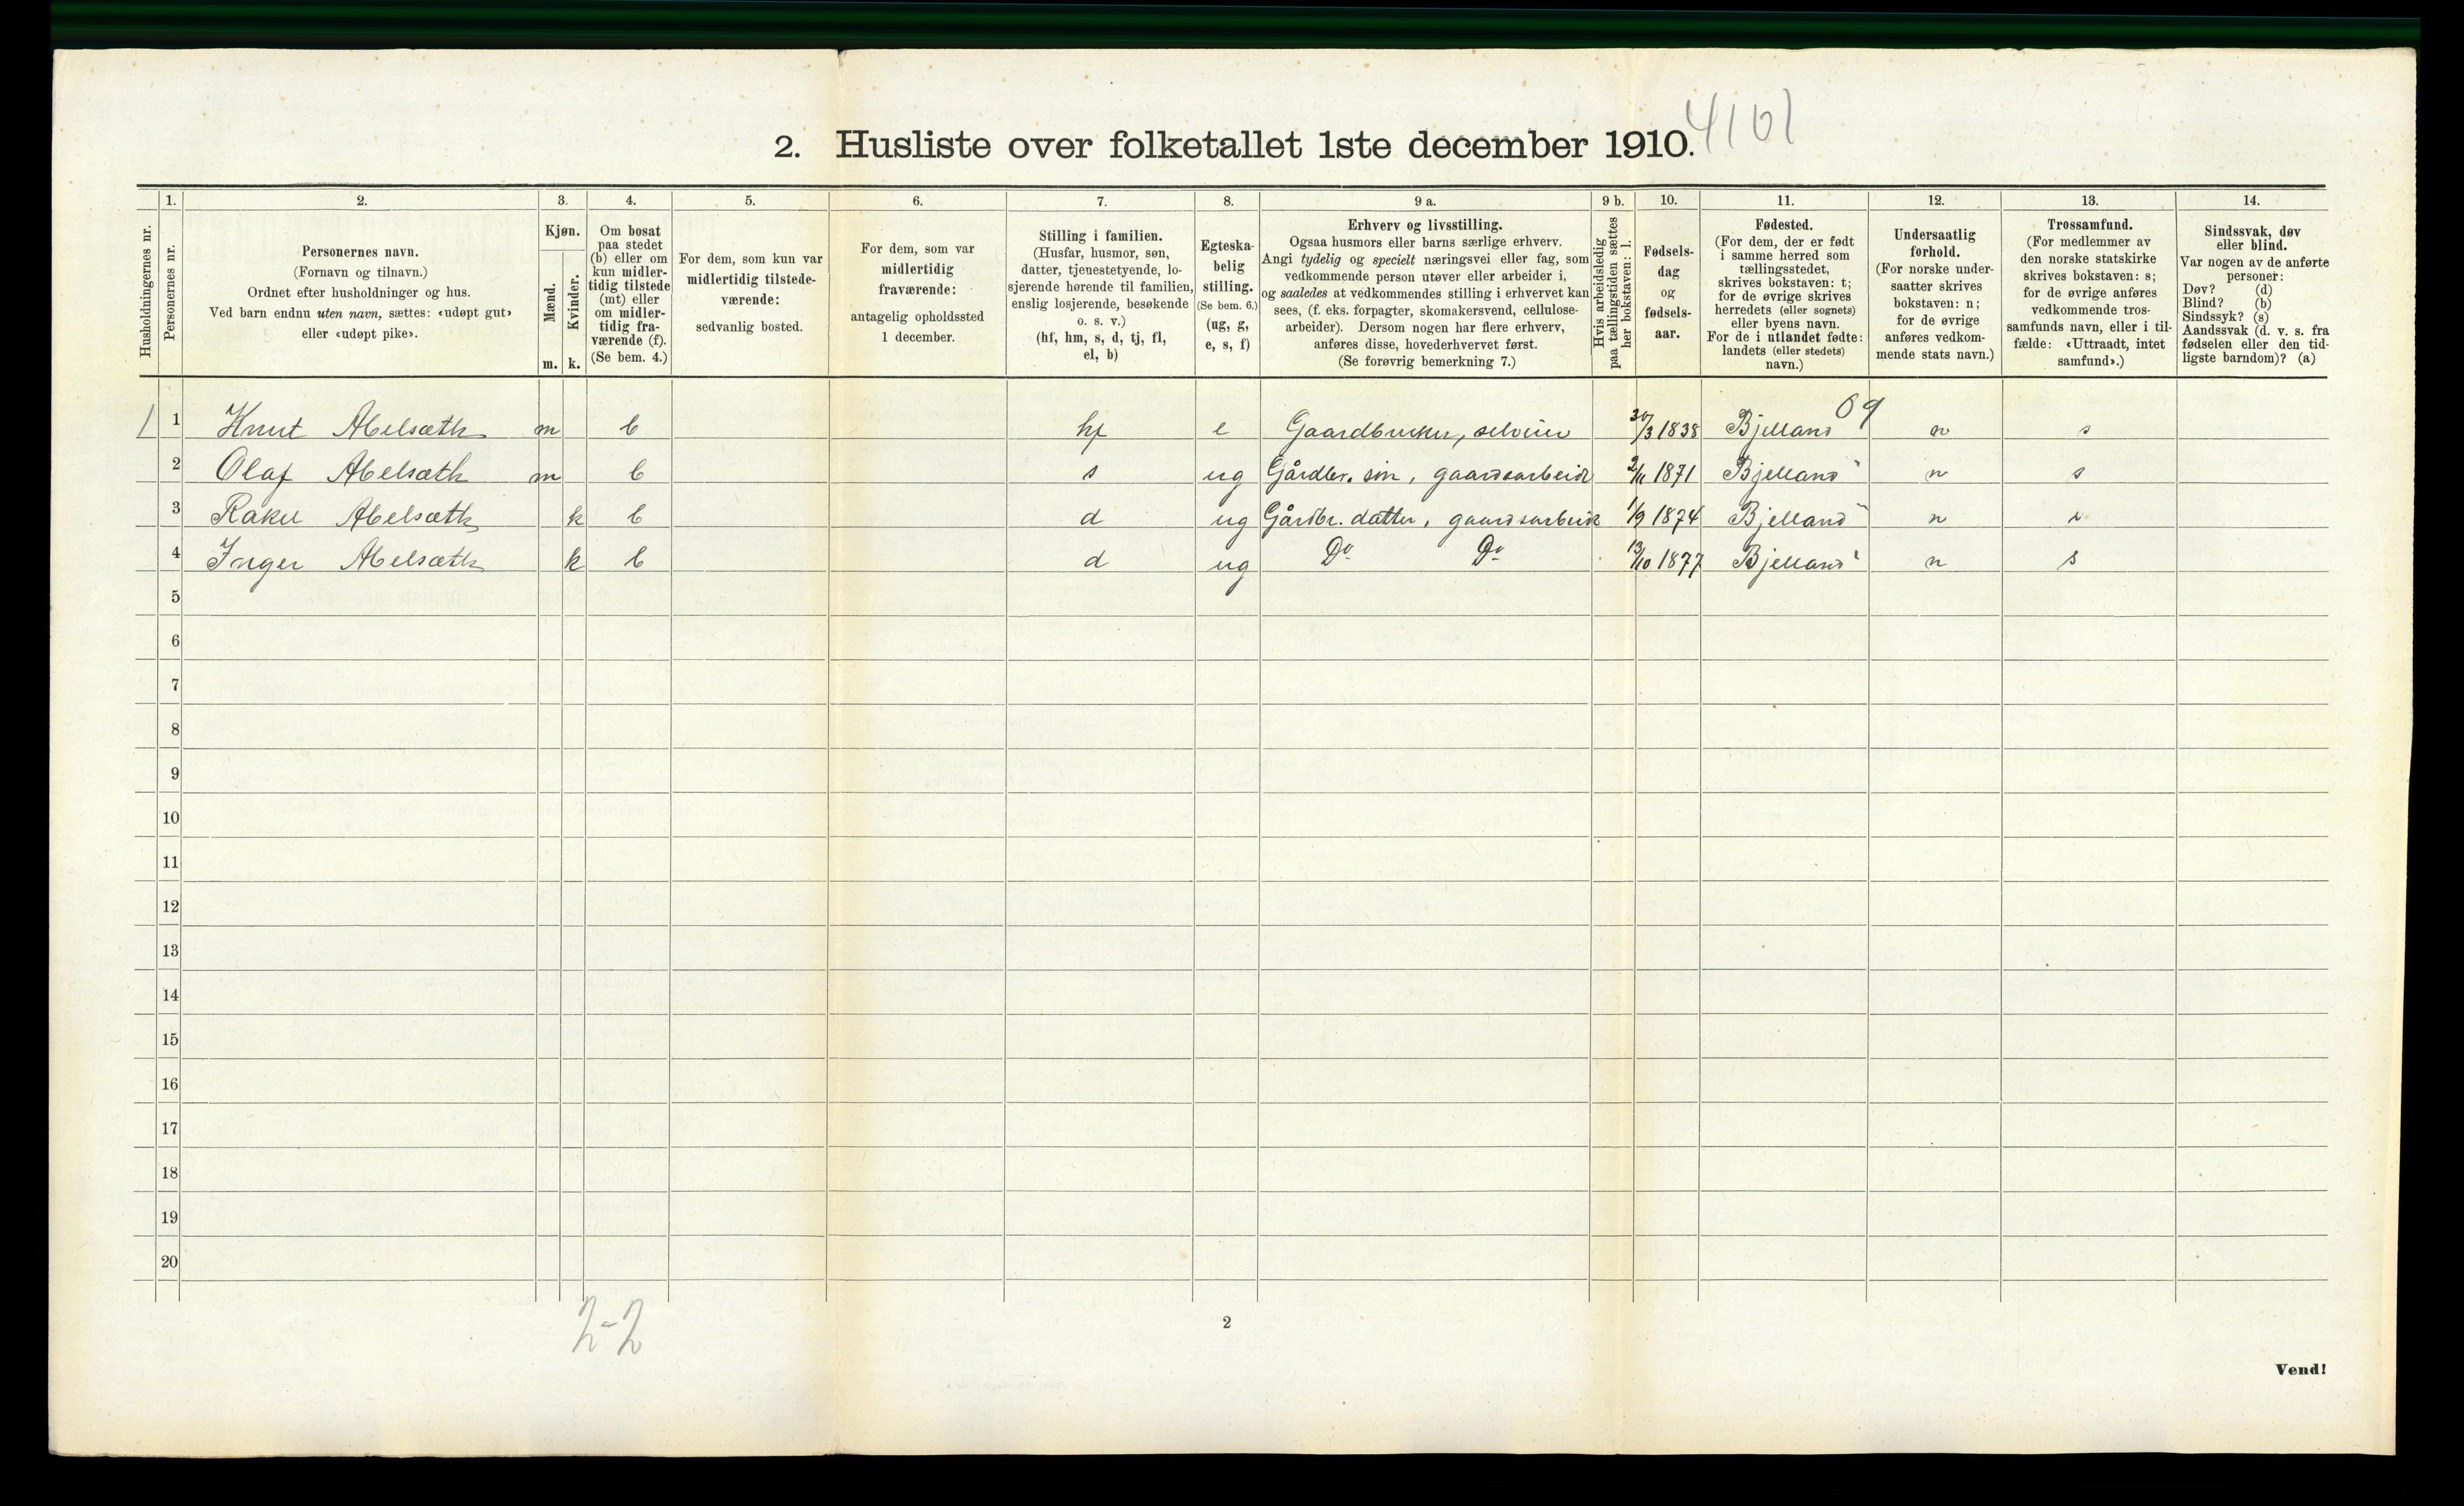 4101
2. Husliste over folketallet 1ste december 1910.
Husholdningernes nr.
1. Personernes nr.
2. Personernes navn.
(Fornavn og tilnavn.)
Ordnet efter husholdninger og hus.
Ved barn endnu uten navn, sættes: «udøpt gut»
eller «udøpt pike».
3. Kjøn.
Mænd. m.
Kvinder. k.
4. Om bosat
paa stedet
(b) eller om
kun midler-
tidig tilstede
(mt) eller
om midler-
tidig fra-
værende (f).
(Se bem. 4.)
5. For dem, som kun var
midlertidig tilstede-
værende:
sedvanlig bosted.
6. For dem, som var
midlertidig
fraværende:
antagelig opholdssted
1 december.
7. Stilling i familien.
(Husfar, husmor, søn,
datter, tjenestetyende, lo-
sjerende hørende til familien,
enslig losjerende, besøkende
o. s. v.)
(hf, hm, s, d, tj, fl,
el, b)
8. Egteska-
belig
stilling.
(Se bem. 6.)
(ug, g,
e, s, f)
9 a. Erhverv og livsstilling.
Ogsaa husmors eller barns særlige erhverv.
Angi tydelig og specielt næringsvei eller fag, som
vedkommende person utøver eller arbeider i,
og saaledes at vedkommendes stilling i erhvervet kan
sees, (f. eks. forpagter, skomakersvend, cellulose-
arbeider). Dersom nogen har flere erhverv,
anføres disse, hovederhvervet først.
(Se forøvrig bemerkning 7.)
9 b. Hvis arbeidsledig
paa tællingstiden sættes
her bokstaven: l.
10. Fødsels-
dag
og
fødsels-
aar.
11. Fødested.
(For dem, der er født
i samme herred som
tællingsstedet,
skrives bokstaven: t;
for de øvrige skrives
herredets (eller sognets)
eller byens navn.
For de i utlandet fødte:
landets (eller stedets)
navn.)
12. Undersaatlig
forhold.
(For norske under-
saatter skrives
bokstaven: n;
for de øvrige
anføres vedkom-
mende stats navn.)
13. Trossamfund.
(For medlemmer av
den norske statskirke
skrives bokstaven: s;
for de øvrige anføres
vedkommende tros-
samfunds navn, eller i til-
fælde: «Uttraadt, intet
samfund».)
14. Sindssvak, døv
eller blind.
Var nogen av de anførte
personer:
Døv? (d)
Blind? (b)
Sindssyk? (s)
Aandssvak (d. v. s. fra
fødselen eller den tid-
ligste barndom)? (a)
09
1 1 Knut Abelsæth m b hf e Gaardbruker, selveier 30/3 1838 Bjelland n s
2 Olaf Abelsæth m b s ug Gårdbr. søn, gaardsarbeide 2/11 1871 Bjelland n s
3 Rakel Abelsæth k b d ug Gårdbr. datter, gaardsarbeide 1/9 1874 Bjelland n s
4 Inger Abelsæth k b d ug Do Do 13/10 1877 Bjelland n s
5
6
7
8
9
10
11
12
13
14
15
16
17
18
19
20
2-2
2
Vend!